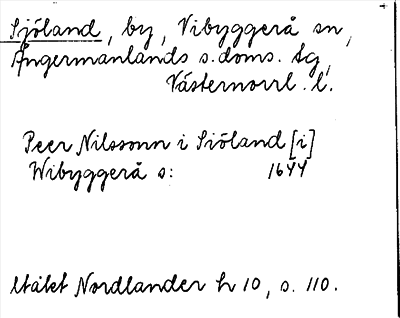 Sjöland, by, Vibyggerå sn,
Ångermanlands s. doms. tg,
Västernorrl. l.
Peer Nilssonn i Siöland [i]
Wibyggerå s: 1644
Utdet Nordlander h 10, s. 110.